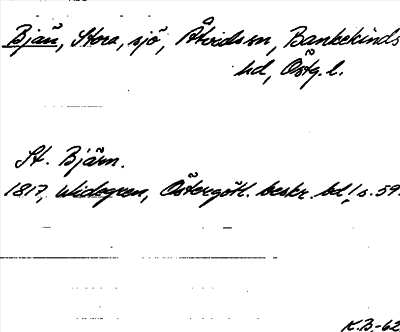 Bjän, Stora, sjö, Åtvids sn, Bankekinds
hd, Östg. l.
St. Bjärn.
1817, Widegren, Östergötl. beskr. bd 1, s. 59.
K.B.-62